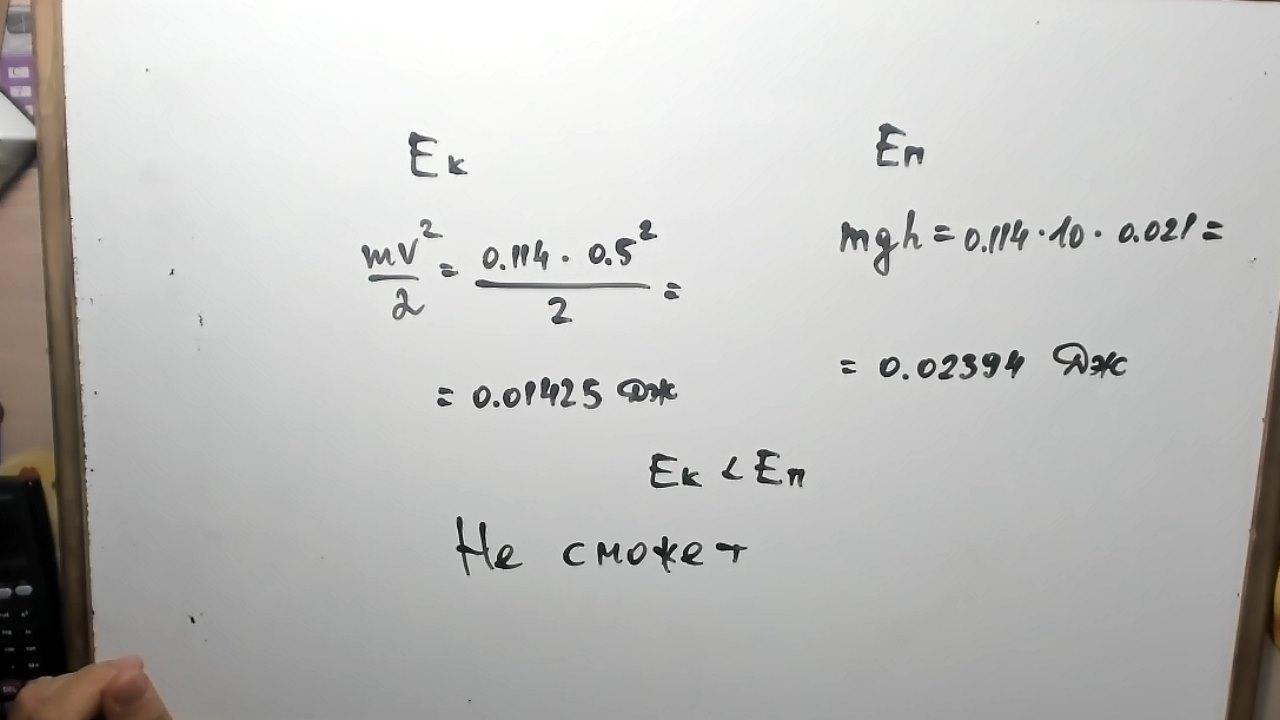 Eк
mv²/2 = 0.114 · 0.5²/2 =
= 0.01425 Дж
Eп
mgh = 0.114 · 10 · 0.021 =
= 0.02394 Дж
Eк < Eп
Не сможет